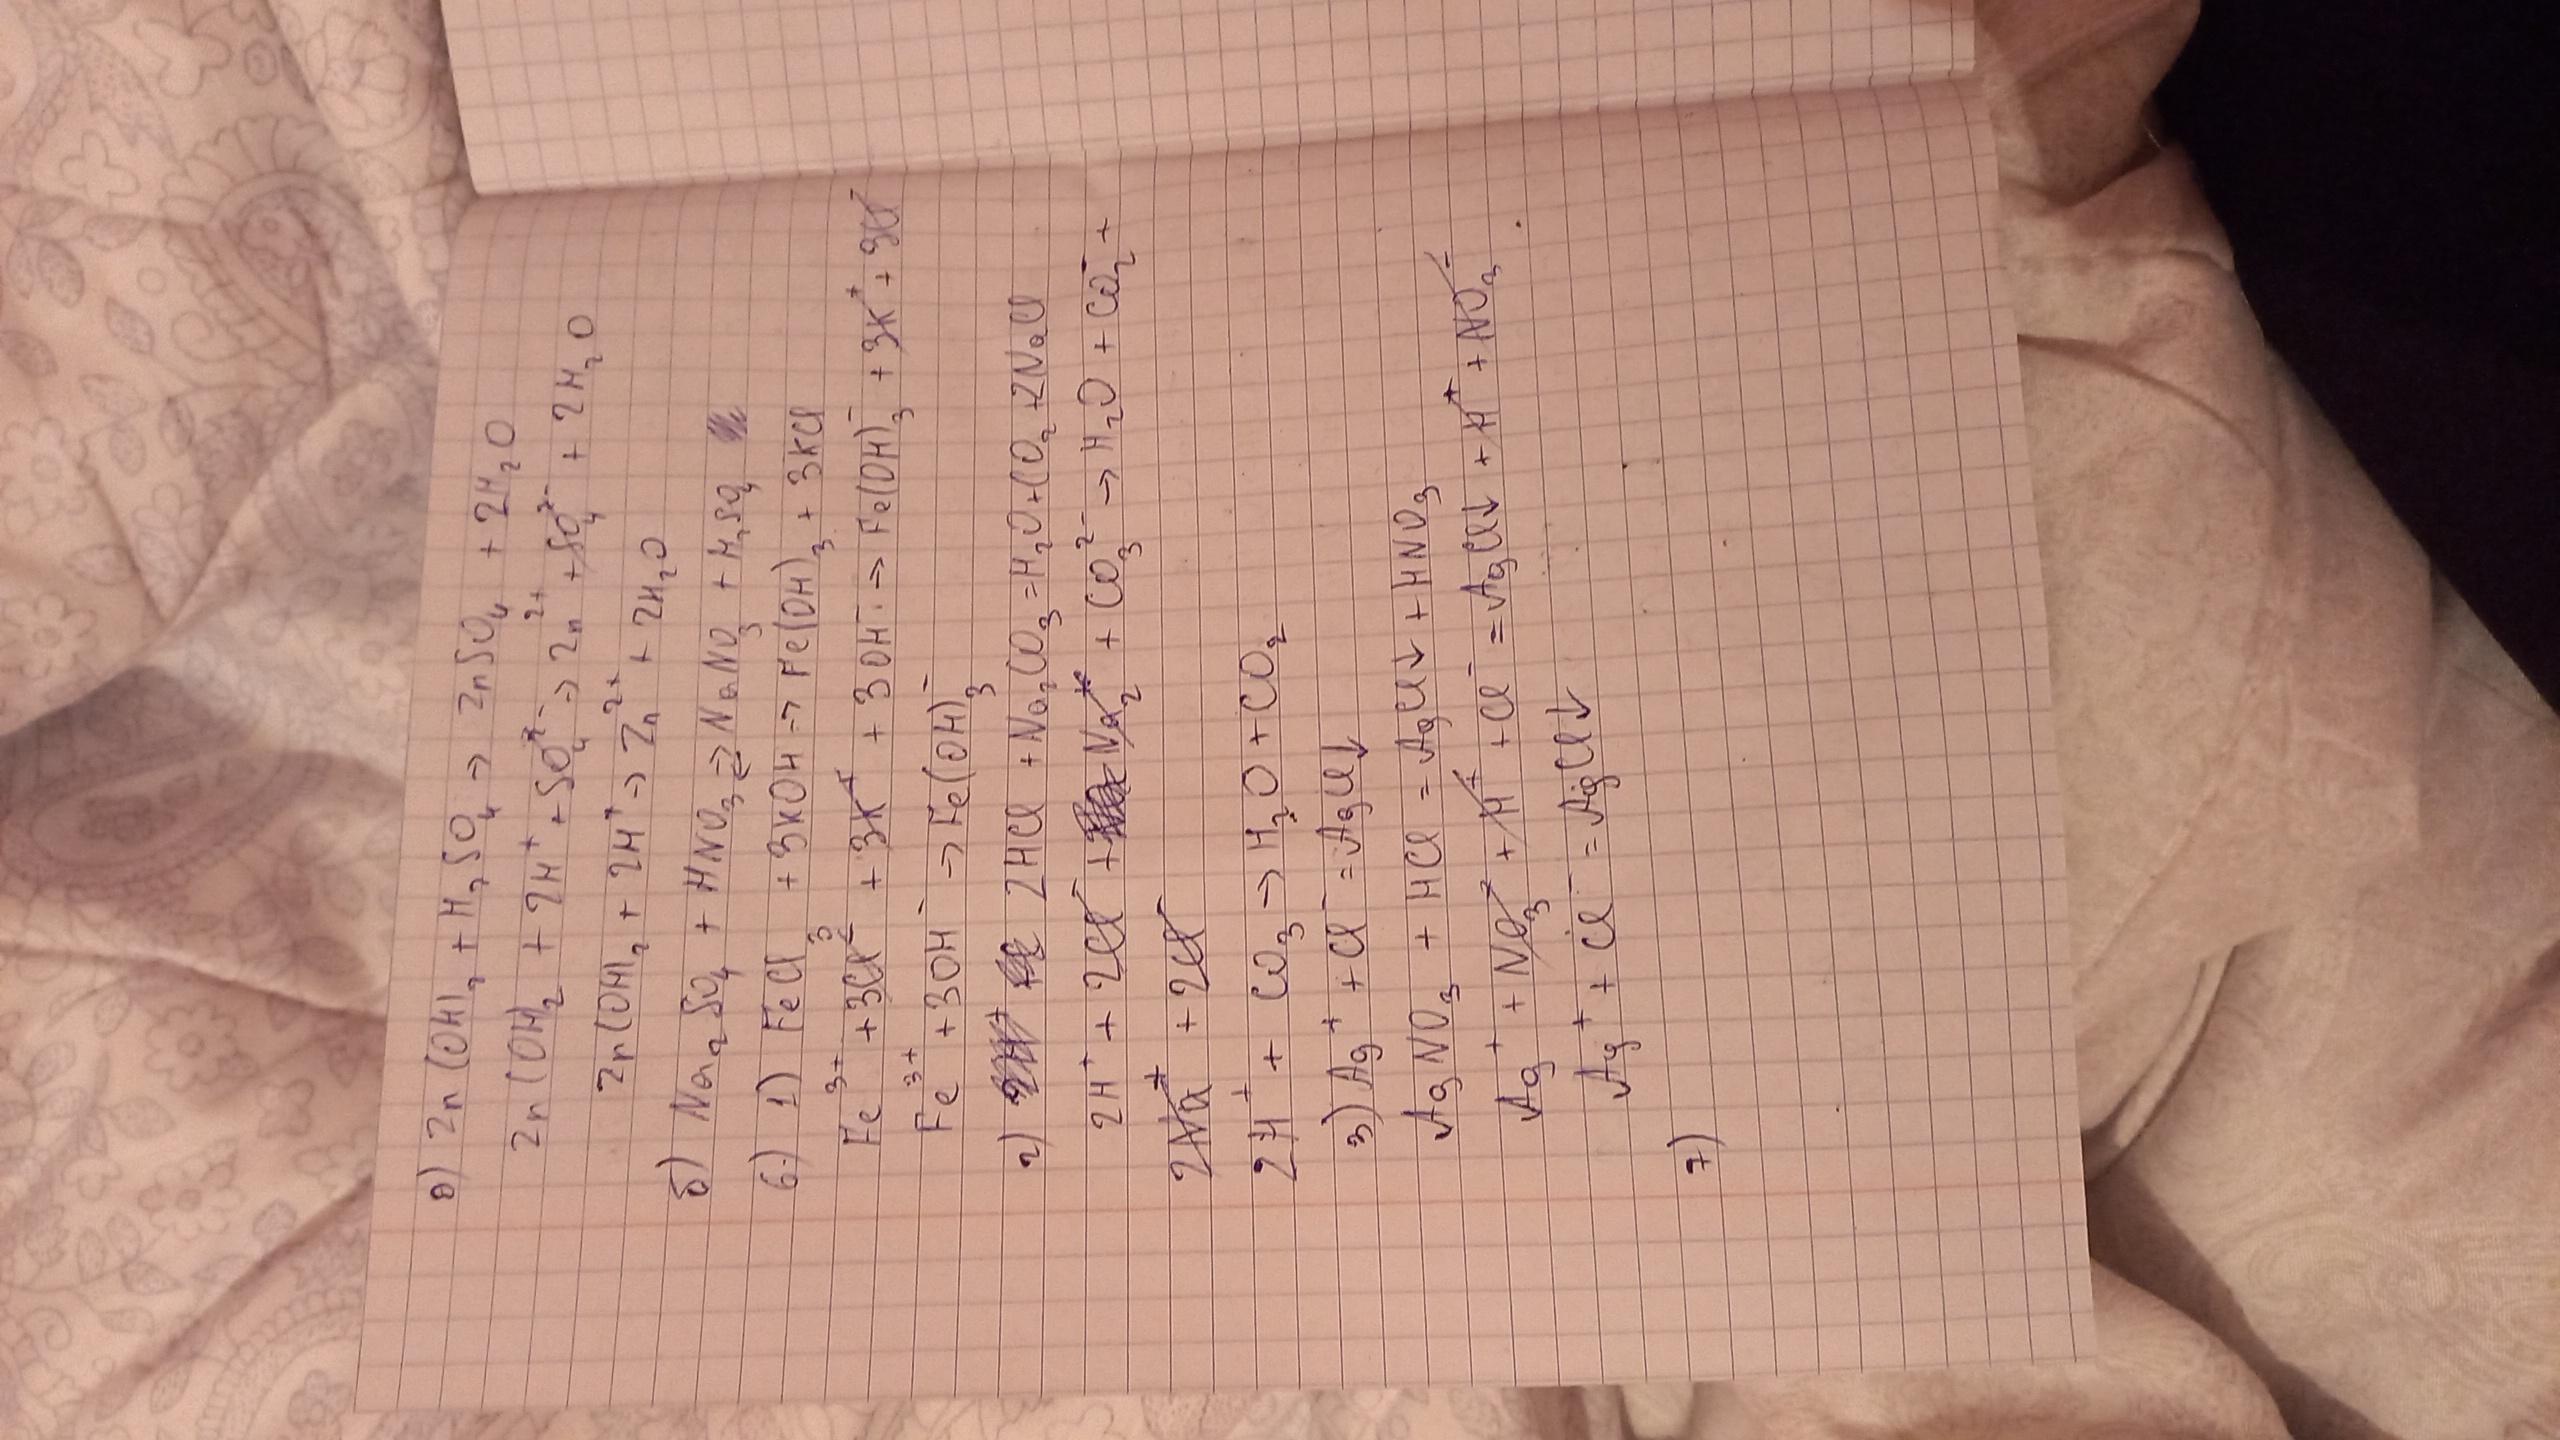 а) Zn(OH)₂ + H₂SO₄ → ZnSO₄ + 2H₂O
Zn(OH)₂ + 2H⁺ + SO₄²⁻ → Zn²⁺ + SO₄²⁻ + 2H₂O
Zn(OH)₂ + 2H⁺ → Zn²⁺ + 2H₂O
б) Na₂SO₄ + HNO₃ ⇄ NaNO₃ + H₂SO₄
6.) 1) FeCl₃ + 3KOH → Fe(OH)₃ + 3KCl
Fe³⁺ + 3Cl⁻ + 3K⁺ + 3OH⁻ → Fe(OH)₃⁻ + 3K⁺ + 3Cl⁻
Fe³⁺ + 3OH⁻ → Fe(OH)₃⁻
2) 2HCl + Na₂CO₃ = H₂O + CO₂ + 2NaCl
2H⁺ + 2Cl⁻ + Na₂⁺ + CO₃²⁻ → H₂O + CO₂⁻ +
2Na⁺ + 2Cl⁻
2H⁺ + CO₃ → H₂O + CO₂
3) Ag⁺ + Cl⁻ = AgCl↓
AgNO₃ + HCl = AgCl↓ + HNO₃
Ag⁺ + NO₃⁻ + H⁺ + Cl⁻ = AgCl↓ + H⁺ + NO₃⁻
Ag⁺ + Cl⁻ = AgCl↓
7)